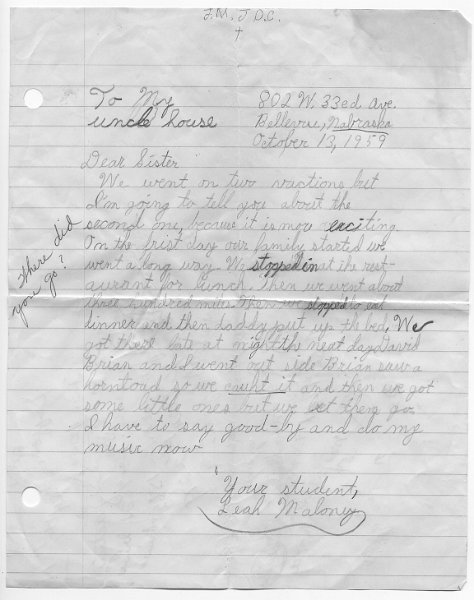 J.M.J.D.C.
†
To My
uncle house
802 W. 33ed Ave.
Bellevue, Nabraska
October 13, 1959
Dear Sister
We went on two vactions but
I'm going to tell you about the
second one, because it is mor exciting.
On the frist day our family started we
went a long way. We stopped in at the rest-
aurant for lunch. Then we went about
three hundred miles. Then we stopped to eat
dinner and then daddy put up the bed. We
got there late at night the next day David
Brian and I went out side Brian saw a
horntoad so we cauht it and then we got
some little ones but we let them go.
I have to say good-by and do my
music now
Where did
you go?
Your student,
Leah Maloney